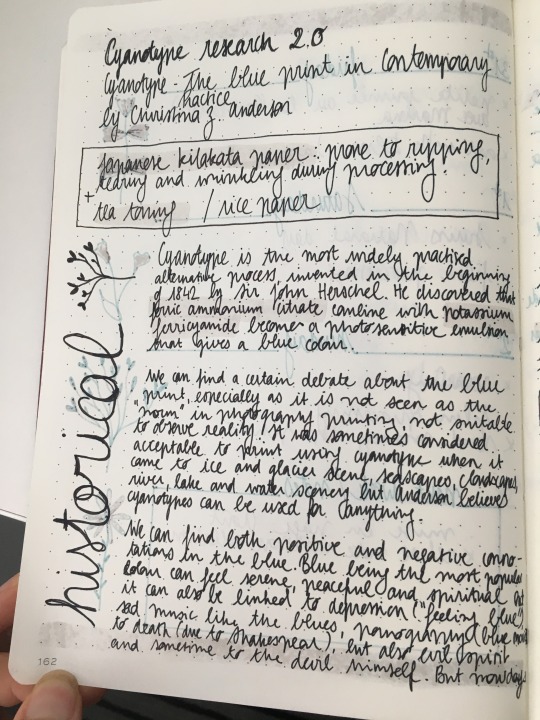 Cyanotype research 2.0
Cyanotype - The blue print in contemporary
practice
by Christina Z. Anderson
Japanese kilakata paper : prone to ripping,
tearing and wrinkling during processing.
+
tea toning / rice paper
historical
Cyanotype is the most widely practised
alternative process, invented in the beginning
of 1842 by Sir John Herschel. He discovered that
ferric ammonium citrate combine with potassium
ferricyanide become a photosensitive emulsion
that gives a blue colour.
We can find a certain debate about the blue
print, especially as it is not seen as the
"norm" in photography printing, not suitable
to observe reality. It was sometimes considered
acceptable to print using cyanotype when it
came to ice and glacier scent, seascapes, cloudscapes,
river, lake and water scenery but Anderson believes
cyanotypes can be used for anything.
We can find both positive and negative conno-
tations in the blue. Blue being the most popular
colour can feel serene, peaceful and spiritual
it can also be linked to depression ("feeling blue")
sad music like the blues, pornography (blue
to death (due to Shakespear), but also evil spirit
and sometime to the devil himself. But nowdays
162